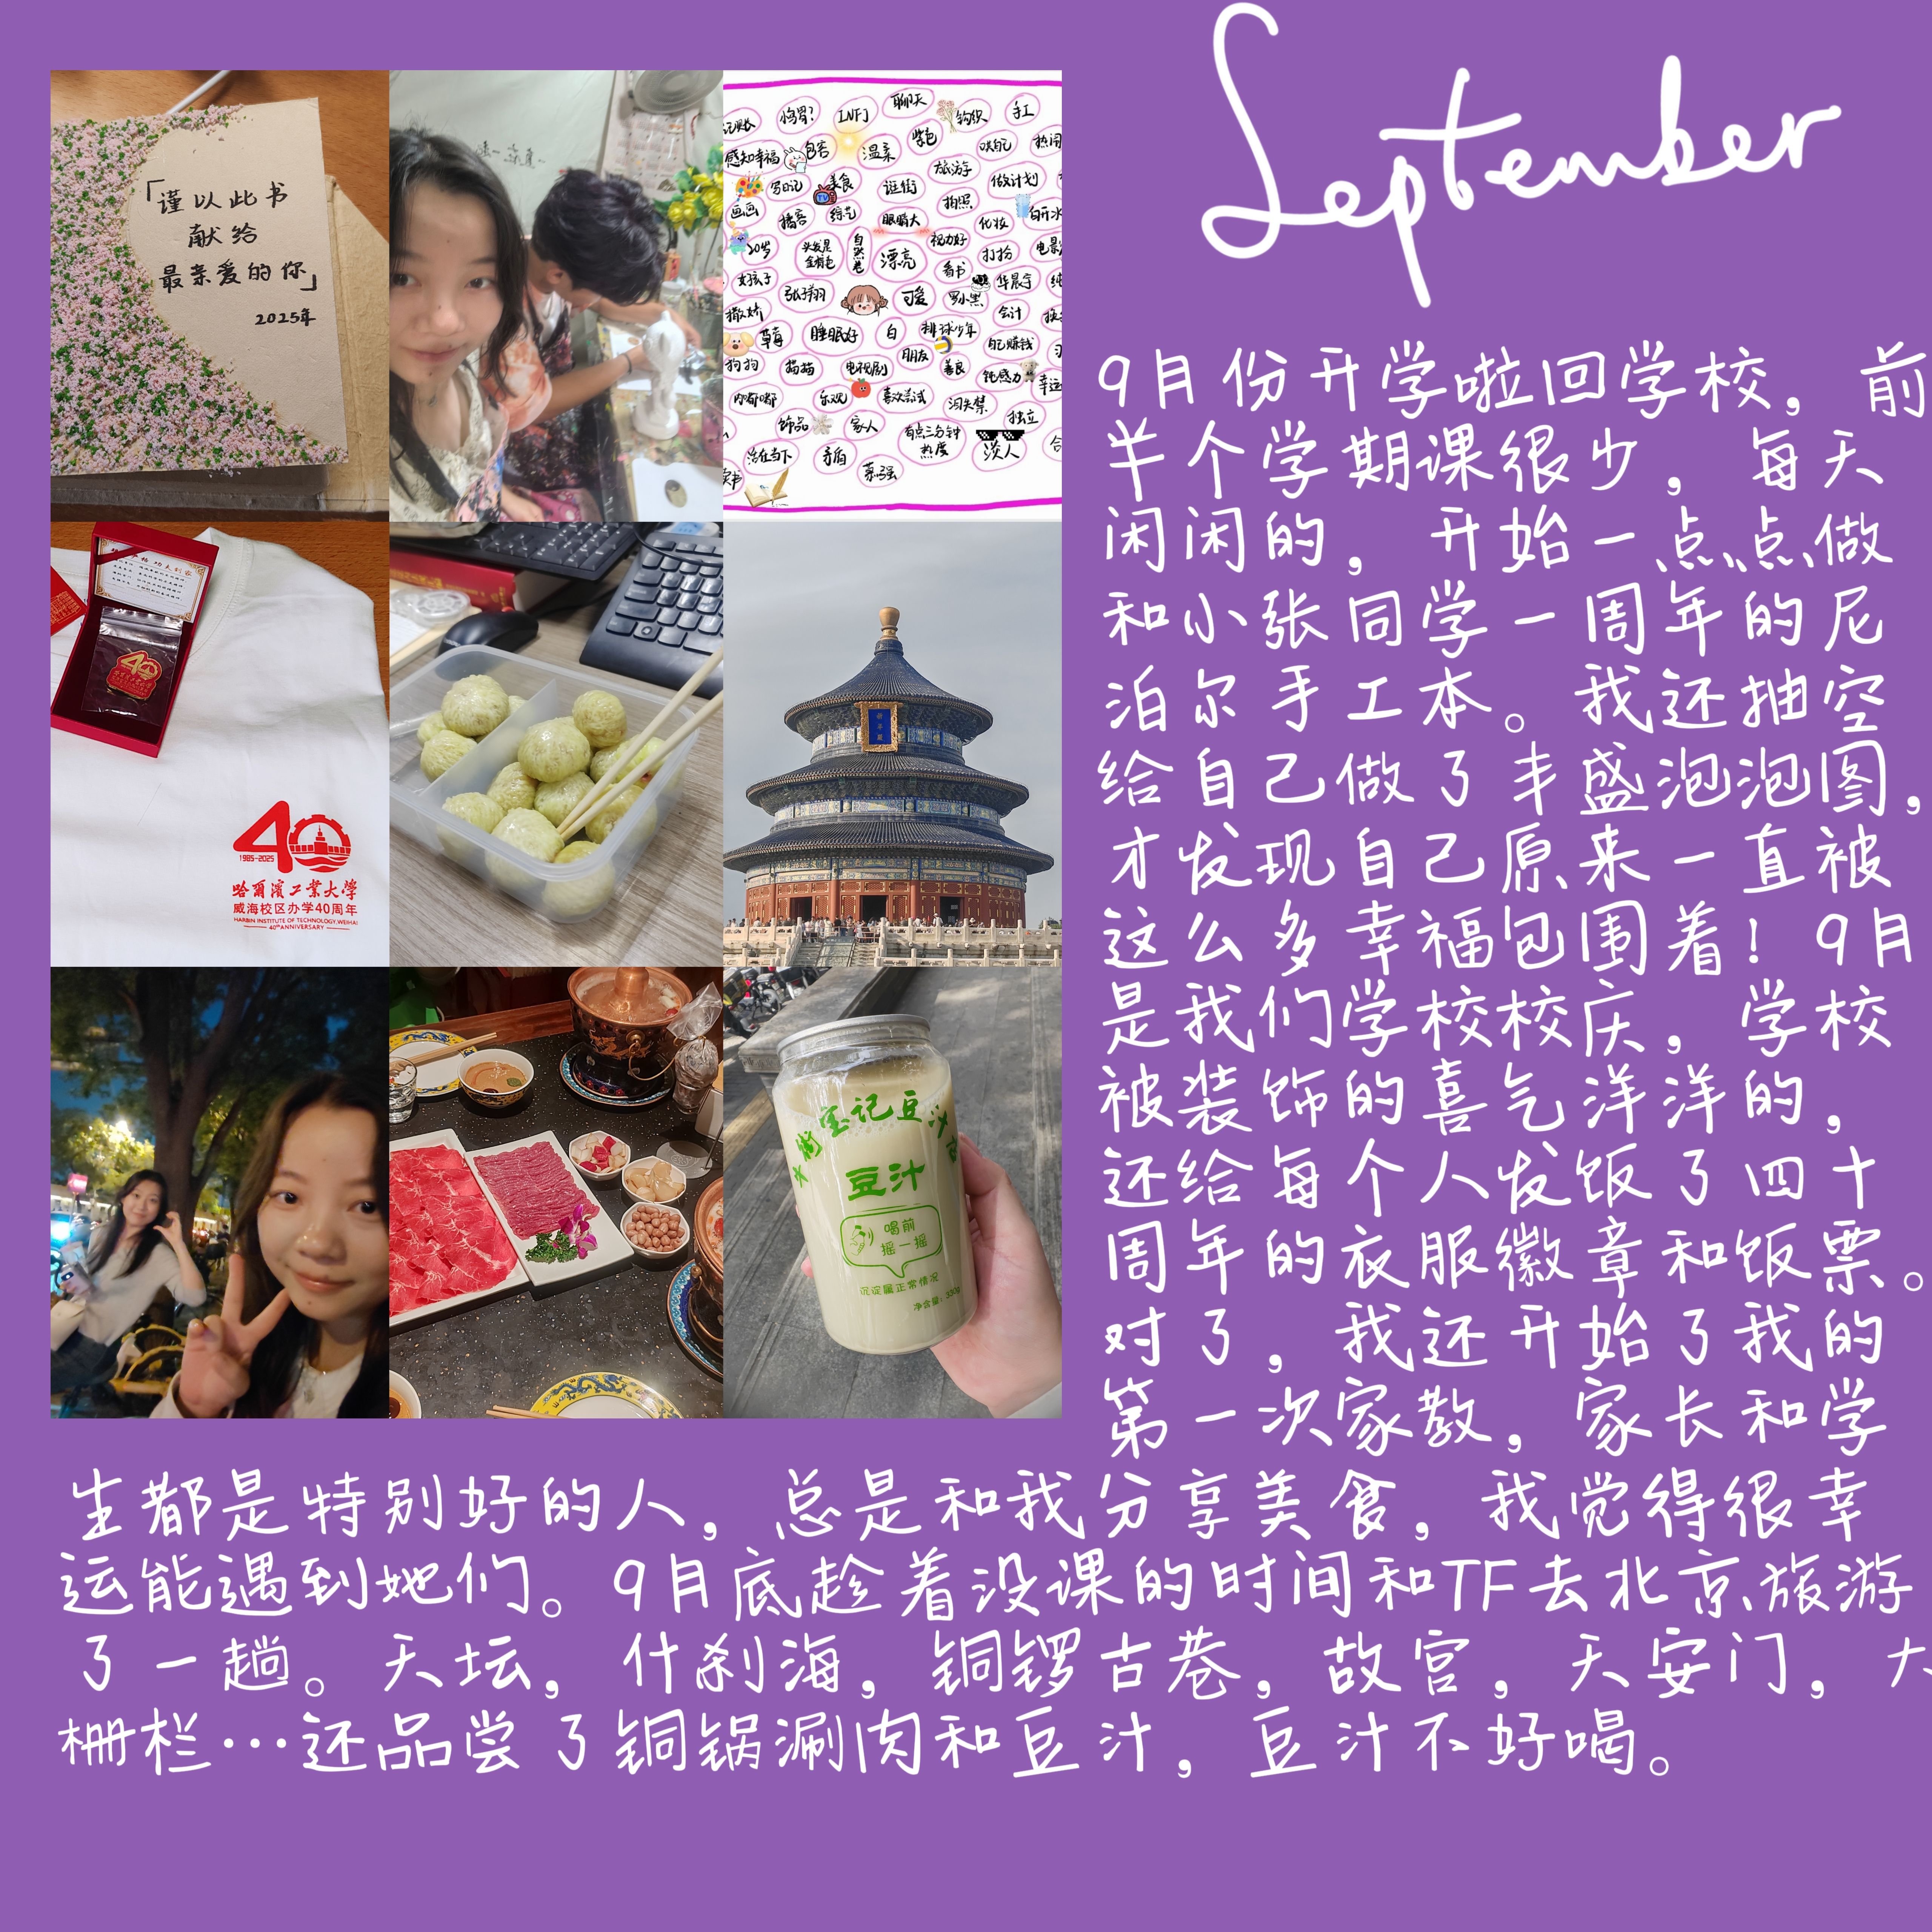 September
9月份开学啦回学校，前
半个学期课很少，每天
闲闲的，开始一点点做
和小张同学一周年的尼
泊尔手工本。我还抽空
给自己做了丰盛泡泡图，
才发现自己原来一直被
这么多幸福包围着！9月
是我们学校校庆，学校
被装饰的喜气洋洋的，
还给每个人发饭了四十
周年的衣服徽章和饭票。
对了，我还开始了我的
第一次家教，家长和学
生都是特别好的人，总是和我分享美食，我觉得很幸
运能遇到她们。9月底趁着没课的时间和TF去北京旅游
了一趟。天坛，什刹海，铜锣古巷，故宫，天安门，大
栅栏…还品尝了铜锅涮肉和豆汁，豆汁不好喝。
「谨以此书
献给
最亲爱的你」
2025年
聊天
INFJ
钩织
手工
紫色
哄自己
感知幸福
包容
温柔
旅游
写日记
美食
逛街
做计划
画画
播客
综艺
眼睛大
拍照
化妆
20岁
头发是
金褐色
自然卷
漂亮
视力好
打扮
女孩子
张子羽
看书
可爱
罗小黑
华晨宇
撒娇
会计
草莓
睡眠好
白
排球少年
自己赚钱
狗狗
猫猫
电视剧
朋友
善良
钝感力
幸运
乐观
喜欢尝试
泪失禁
独立
饰品
家人
有点三分钟
热度
淡人
活在当下
矛盾
慕强
40
1985-2025
哈爾濱工業大學
威海校区办学40周年
HARBIN INSTITUTE OF TECHNOLOGY, WEIHAI
40th ANNIVERSARY
宝记豆汁
豆汁
喝前
摇一摇
沉淀属正常情况
净含量：330g